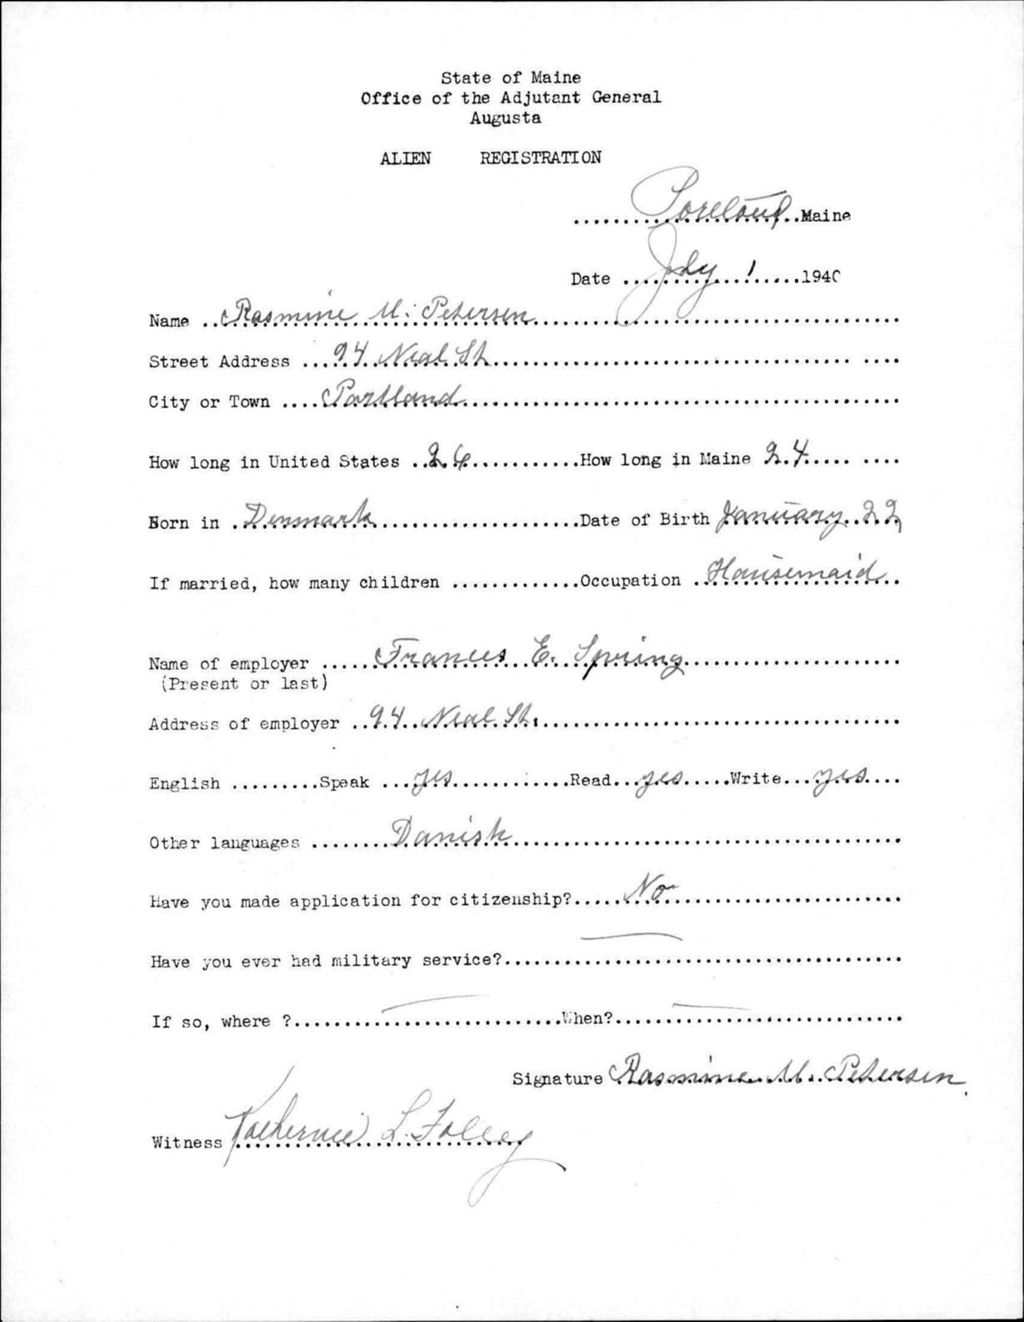 State of Maine
Office of the Adjutant General
Augusta
ALIEN REGISTRATION
Portland Maine
Date July 1 1940
Name Rasmine M. Petersen
Street Address 94 Neal St
City or Town Portland
How long in United States 26 How long in Maine 24
Born in Denmark Date of Birth January 22
If married, how many children Occupation Housemaid
Name of employer Frances E. Spring
(Present or last)
Address of employer 94 Neal St.
English Speak yes Read yes Write yes
Other languages Danish
Have you made application for citizenship? No
Have you ever had military service?
If so, where ? When?
Signature Rasmine M. Petersen
Witness Katherine L. Foley